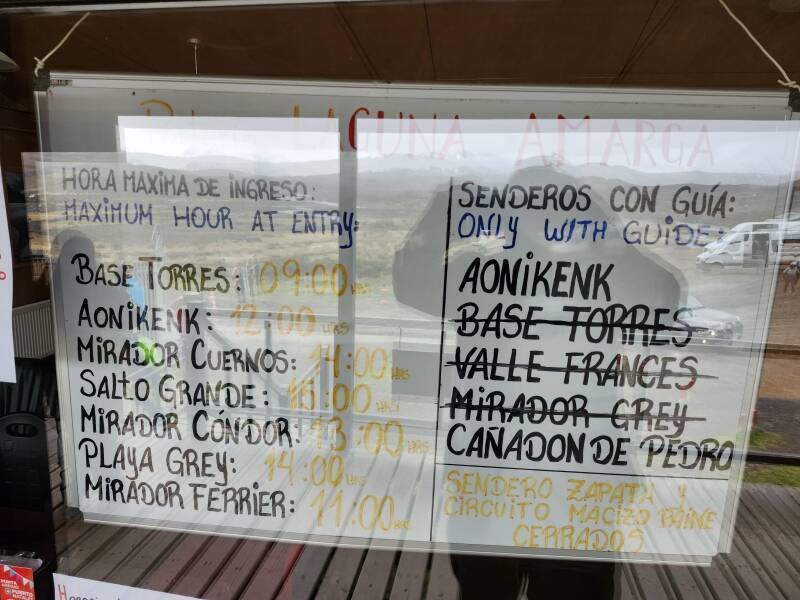 LAGUNA AMARGA
HORA MAXIMA DE INGRESO:
MAXIMUM HOUR AT ENTRY:
BASE TORRES: 09:00 HRS
AONIKENK: 12:00 HRS
MIRADOR CUERNOS: 14:00 HRS
SALTO GRANDE: 15:00 HRS
MIRADOR CÓNDOR: 13:00 HRS
PLAYA GREY: 14:00 HRS
MIRADOR FERRIER: 11:00 HRS
SENDEROS CON GUÍA:
ONLY WITH GUIDE:
AONIKENK
BASE TORRES
VALLE FRANCES
MIRADOR GREY
CAÑADON DE PEDRO
SENDERO ZAPATA Y
CIRCUITO MACIZO PAINE
CERRADOS
PUNTA
ARENAS
PUERTO
NATALES